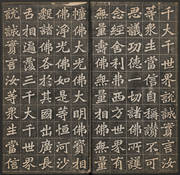 千大千世界說誠實言汝
等眾生當信是稱讚不可
思議功德一切諸佛所護
念經舍利弗西方世界有
無量壽佛無量相佛無量
幢佛大光佛大明佛寶相
佛淨光佛如是等恒河沙
數諸佛各於其國出廣長
舌相遍覆三千大千世界
說誠實言汝等眾生當信